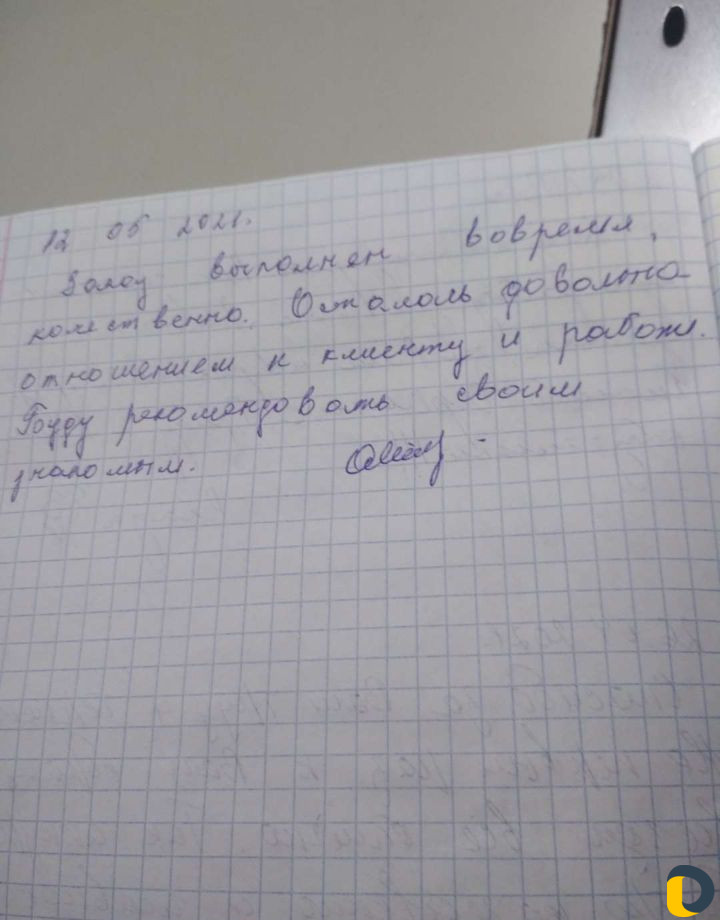 12 05 2021.
Заказ выполнен вовремя,
качественно. Осталась довольна
отношением к клиенту и работе.
Буду рекомендовать своим
знакомым.